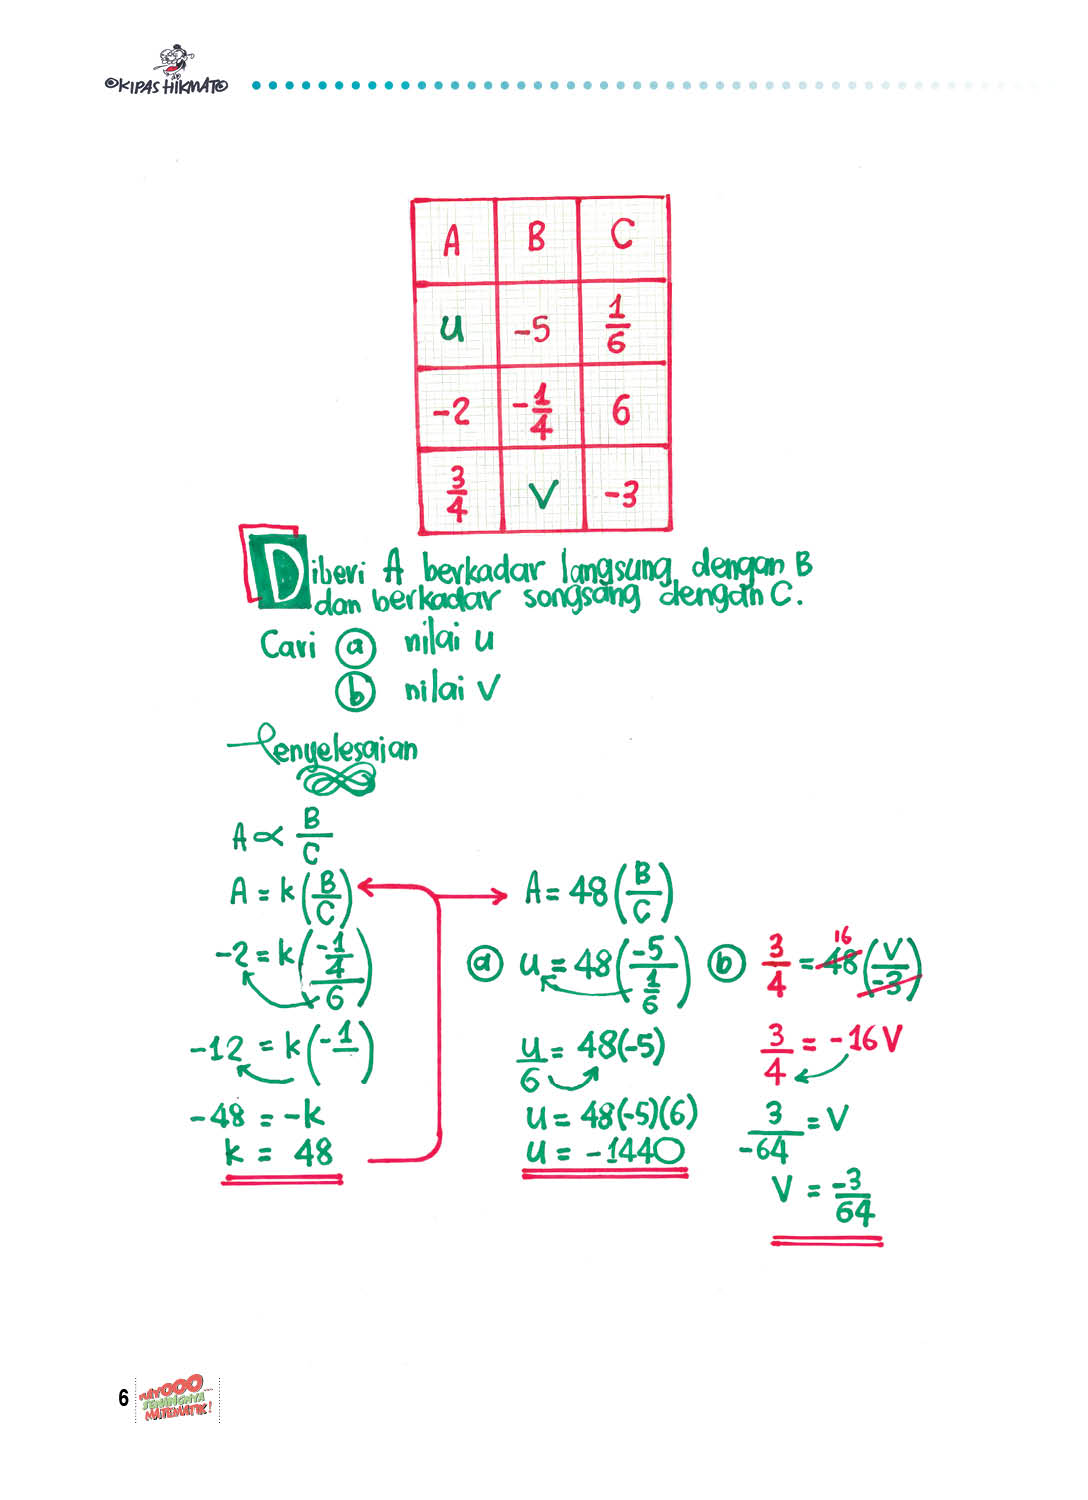 ©KIPAS HIKMAT©
A B C
u -5 1/6
-2 -1/4 6
3/4 V -3
Diberi A berkadar langsung dengan B
dan berkadar songsang dengan C.
Cari (a) nilai u
(b) nilai V
Penyelesaian
A ∝ B/C
A = k(B/C)
-2 = k((-1/4)/6)
-12 = k(-1/ )
-48 = -k
k = 48
A = 48(B/C)
(a) u = 48(-5/(1/6))
u/6 = 48(-5)
u = 48(-5)(6)
u = -1440
(b) 3/4 = 48(V/-3)
16
3/4 = -16V
3/-64 = V
V = -3/64
6
SENANGNYA
MATEMATIK!